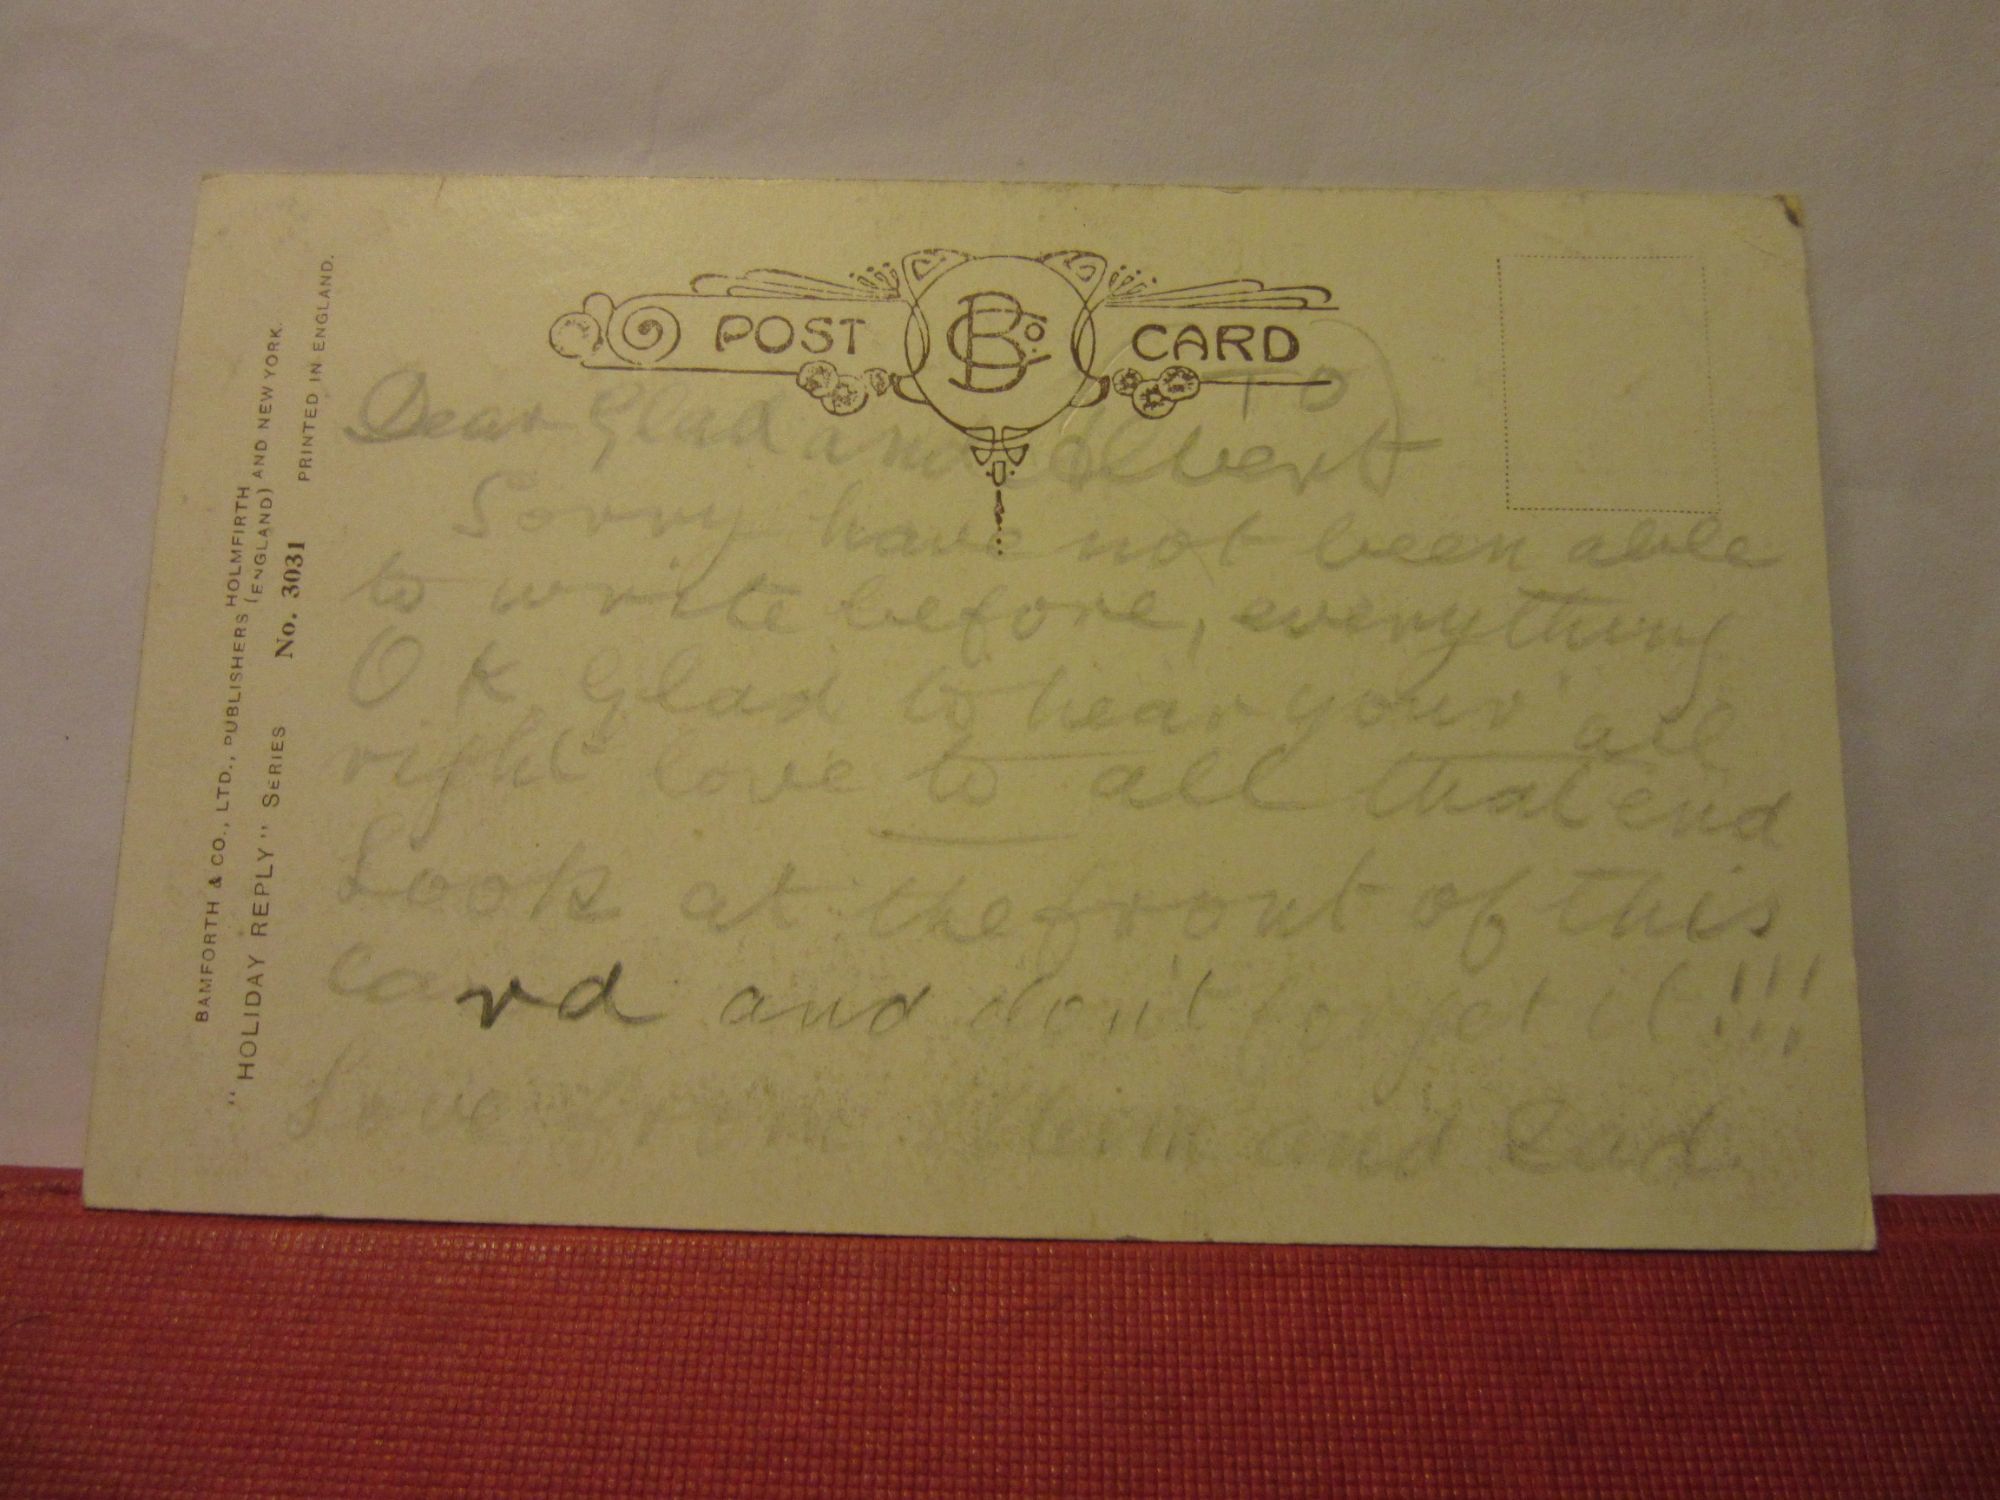 POST CARD
BCo.
TO
Dear Glad and Albert
Sorry have not been able
to write before, everything
O K Glad to hear your all
right love to all that end
Look at the front of this
card and don't forget it!!!
Love from and Dad
BAMFORTH & CO., LTD., PUBLISHERS HOLMFIRTH
(ENGLAND) AND NEW YORK.
"HOLIDAY REPLY" SERIES No. 3031 PRINTED IN ENGLAND.